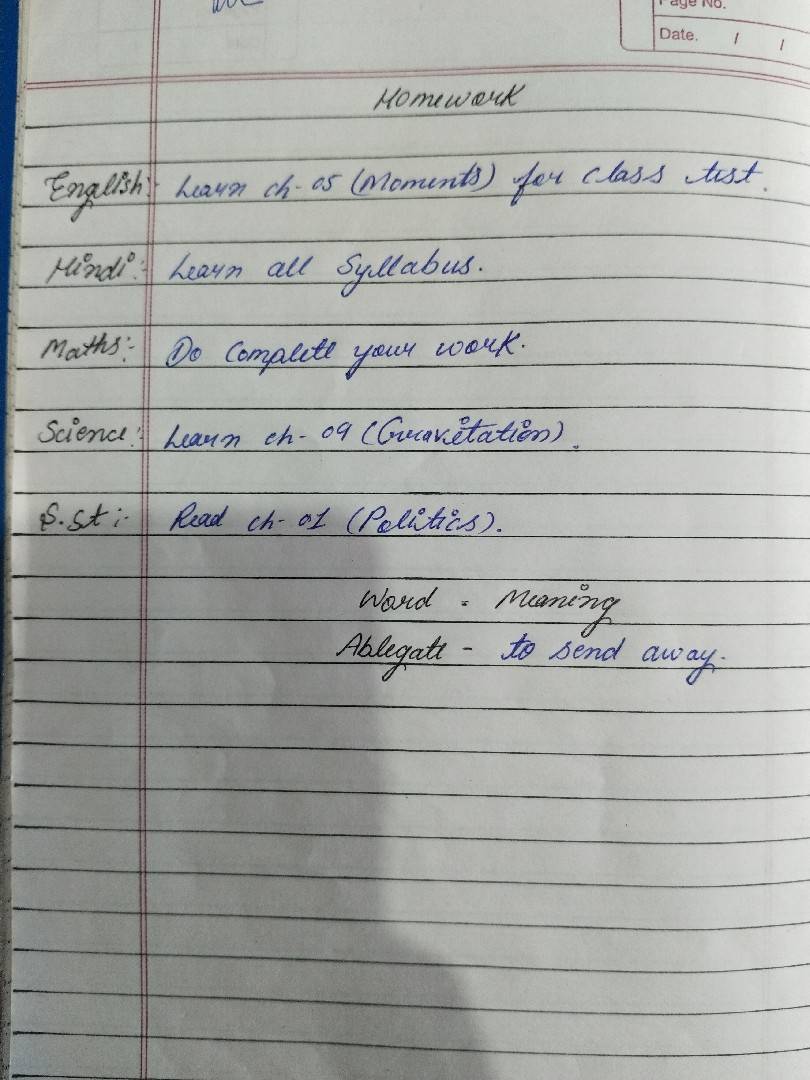 Page No.
Date. / /
Homework
English:- Learn ch- 05 (Moments) for class test.
Hindi:- Learn all Syllabus.
Maths:- Do Complete your work.
Science:- Learn ch- 09 (Gravitation).
S.St:- Read ch- 01 (Politics).
Word - Meaning
Ablegate - to send away.